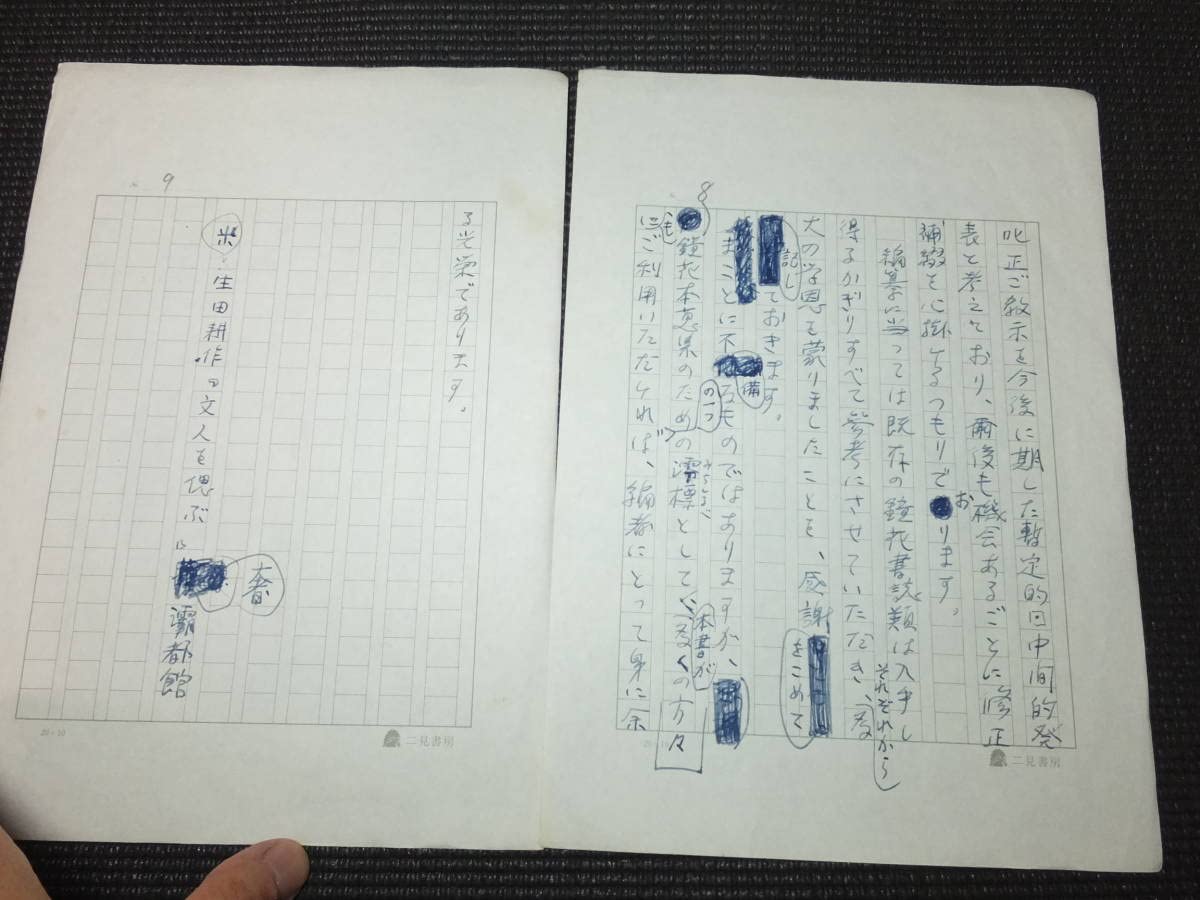 8
叱正ご教示を今後に期した暫定的中間的発
表と考えており、爾後も機会あるごとに修正
補綴を心掛けるつもりでおります。
編纂に当っては既存の鏡花書誌類は入手し
得るかぎりすべて参考にさせていただき、それぞれから多
大の学恩を蒙りましたことを、感謝をこめて
記しておきます。
まことに不備なものではありますが、本書が
鏡花本蒐集のための澪標の一つとして多くの方々
にもご利用いただければ、編者にとって身に余
みをつくし
二見書房
9
る光栄であります。
米
生田耕作 文人を偲ぶ
奢
灞都館
20×10
二見書房